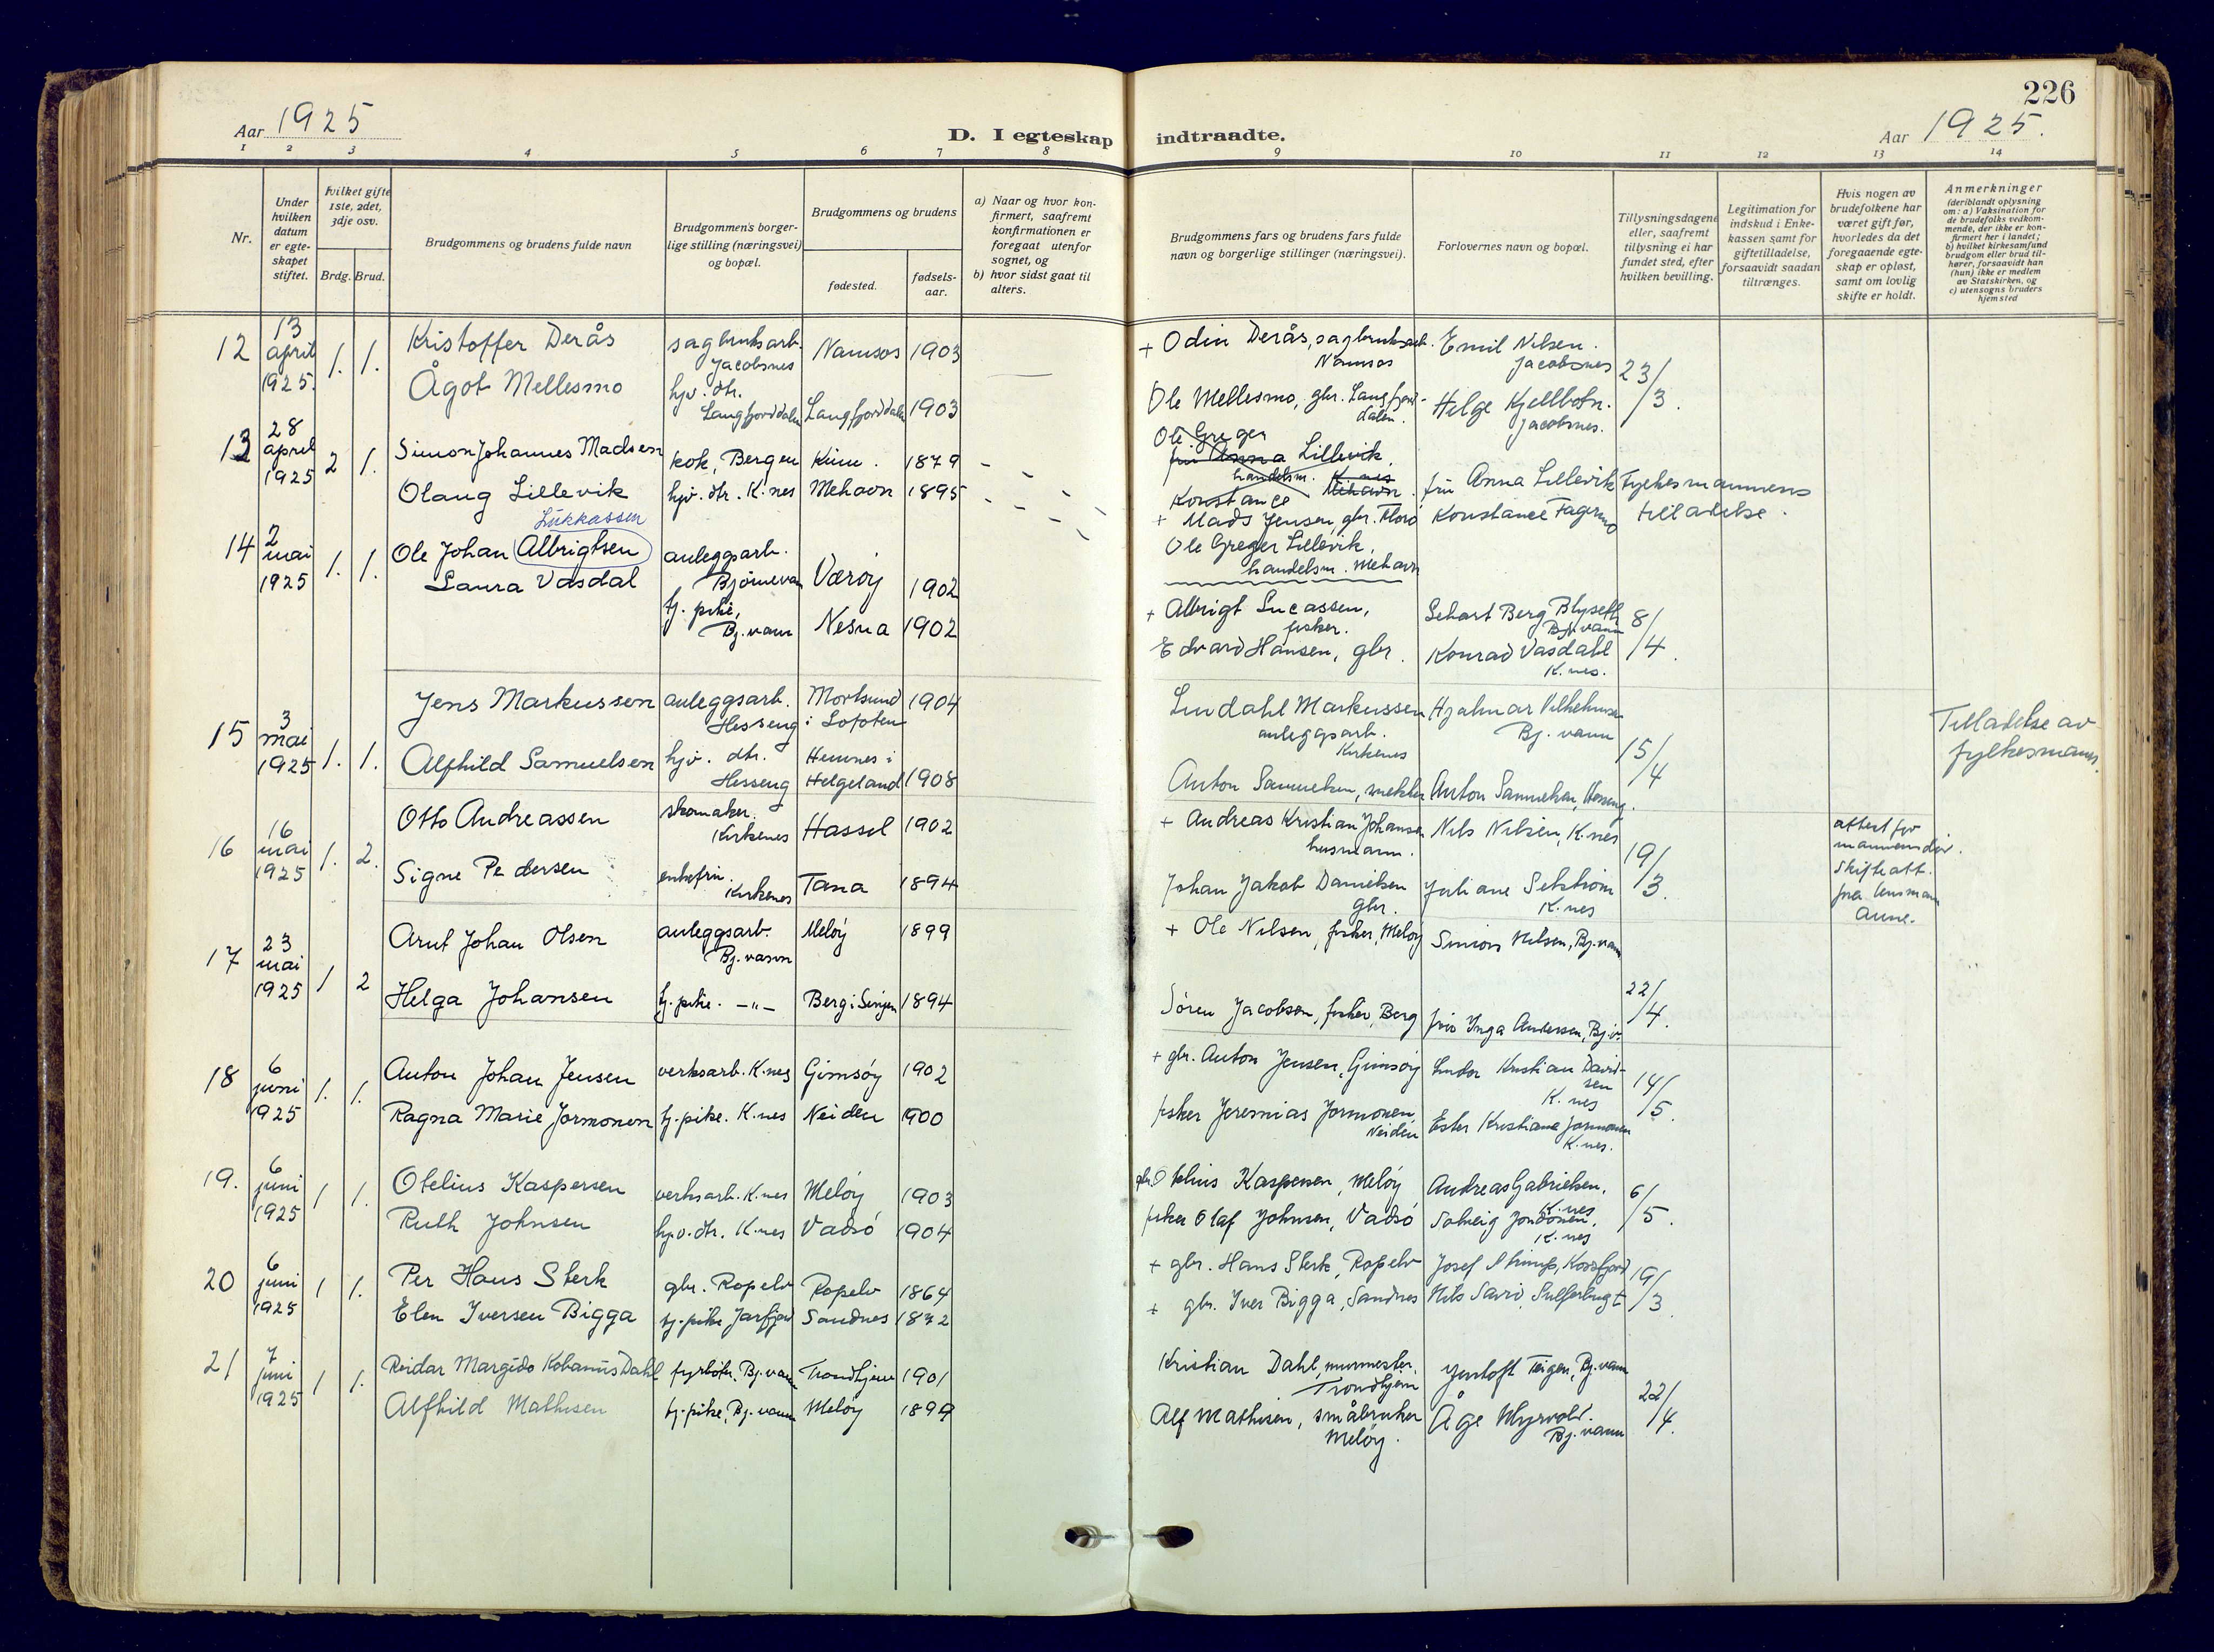 226
Aar 1925
D. I egteskap indtraadte.
Aar 1925.
1 2 3 4 5 6 7 8 9 10 11 12 13 14
Nr.
Under hvilken datum er egteskapet stiftet.
Hvilket gifte 1ste, 2det, 3dje osv.
Brdg. Brud.
Brudgommens og brudens fulde navn
Brudgommens borgerlige stilling (næringsvei) og bopæl.
Brudgommens og brudens
fødested.
fødselsaar.
a) Naar og hvor konfirmert, saafremt konfirmationen er foregaat utenfor sognet, og
b) hvor sidst gaat til alters.
Brudgommens fars og brudens fars fulde navn og borgerlige stillinger (næringsvei).
Forlovernes navn og bopæl.
Tillysningsdagene eller, saafremt tillysning ei har fundet sted, efter hvilken bevilling.
Legitimation for indskud i Enkekassen samt for giftetilladelse, forsaavidt saadan tiltrænges.
Hvis nogen av brudefolkene har været gift før, hvorledes da det foregaaende egteskap er opløst, samt om lovlig skifte er holdt.
Anmerkninger (deriblandt oplysning om: a) Vaksination for de brudefolks vedkommende, der ikke er konfirmert her i landet; b) hvilket kirkesamfund brudgom eller brud tilhører, forsaavidt han (hun) ikke er medlem av Statskirken, og c) utensogns bruders hjemsted
12 13 april 1925. 1. 1. Kristoffer Derås sagbruksarb. Jacobsnes Namsos 1903 + Odin Derås, sagbruksarb. Namsos Emil Nilsen. Jacobsnes 23/3.
Ågot Mellesmo hjv. dtr. Langfjorddalen Langfjorddalen 1903 Ole Mellesmo, gbr. Langfjorddalen. Helge Kjellbotn. Jacobsnes.
13 28 april 1925 2 1. Simon Johannes Madsen kok, Bergen Kinn. 1879 Ole Greger
fru Anna Lillevik, handelsm. K.nes Mehavn. fru Anna Lillevik Fylkesmannens tilladelse.
Olaug Lillevik hjv. dtr. K.nes Mehavn 1895 Konstance
+ Mads Jensen, gbr. Florø Konstance Fagermo
Ole Greger Lillevik, handelsm. Mehavn
Lukkassen
14 2 mai 1925 1. 1. Ole Johan Albrigtsen anleggsarb. Bjørnevan Værøy 1902 + Albrigt Lucassen, fisker. Lehart Berg Blyseth Bj.vann 8/4.
Laura Vasdal tj. pike, Bj. vann Nesna 1902 Edvard Hansen, gbr. Konrad Vasdahl K.nes.
15 3 mai 1925 1. 1. Jens Markussen anleggsarb. Hesseng Mortsund i Lofoten 1904 Lindahl Markussen anleggsarb. Kirkenes Hjalmar Vilhelmsen Bj. vann 15/4 Tilladelse av fylkesmann.
Alfhild Samuelsen hjv. dtr. Hesseng Hemnes i Helgeland 1908 Anton Samuelsen, snekker Anton Samuelsen, Hesseng.
16 16 mai 1925 1. 2. Otto Andreassen skomaker. Kirkenes Hassel 1902 + Andreas Kristian Johansen husmann. Nils Nilsen, K.nes 19/3. attest for mannens død. Skifteatt. fra lensmann Aune.
Signe Pedersen enkefru. Kirkenes Tana 1894 Johan Jakob Danielsen gbr. Juliane Selstrøm K.nes
17 23 mai 1925 1 2 Arnt Johan Olsen anleggsarb. Bj. vann Meløy 1899 + Ole Nilsen, fisker, Meløy Simon Nilsen, Bj.vann 22/4.
Helga Johansen tj. pike. -"- Berg i Senjen 1894 Søren Jacobsen, fisker, Berg fru Inga Andersen, Bj.v.
18 6 juni 1925 1. 1. Anton Johan Jensen verksarb. K.nes Gimsøy 1902 + gbr. Anton Jensen, Gimsøy Lindor Kristian Davidsen K. nes 14/5.
Ragna Marie Jormonen tj. pike. K.nes Neiden 1900 fisker Jeremias Jormonen Neiden Ester Kristiane Jormonen K.nes.
19. 6 juni 1925 1 1. Otelius Kaspersen verksarb. K.nes Meløy 1903 gbr. Otelius Kaspersen, Meløy Andreas Gabrielsen, K.nes 6/5.
Ruth Johnsen hjv. dtr. K.nes Vadsø 1904 fisker Olaf Johnsen, Vadsø Solveig Jondonen, K.nes
20 6 juni 1925 1 1. Per Hans Sterk gbr. Ropelv Ropelv 1864 + gbr. Hans Sterk, Ropelv Josef Strimp, Korsfjord 19/3
Elen Iversen Bigga tj. pike Jarfjord Sandnes 1872 + gbr. Iver Bigga, Sandnes Nils Savio, Sulferbugt
21 7 juni 1925 1 1. Reidar Margido Kohanus Dahl fyrbøter, Bj. vann Trondhjem 1901 Kristian Dahl, murmester, Trondhjem Jentoft Teigen, Bj. vann 22/4.
Alfhild Mathisen tj. pike, Bj. vann Meløy 1899 Alf Mathisen, småbruker Meløy. Åge Myrvold. Bj. vann